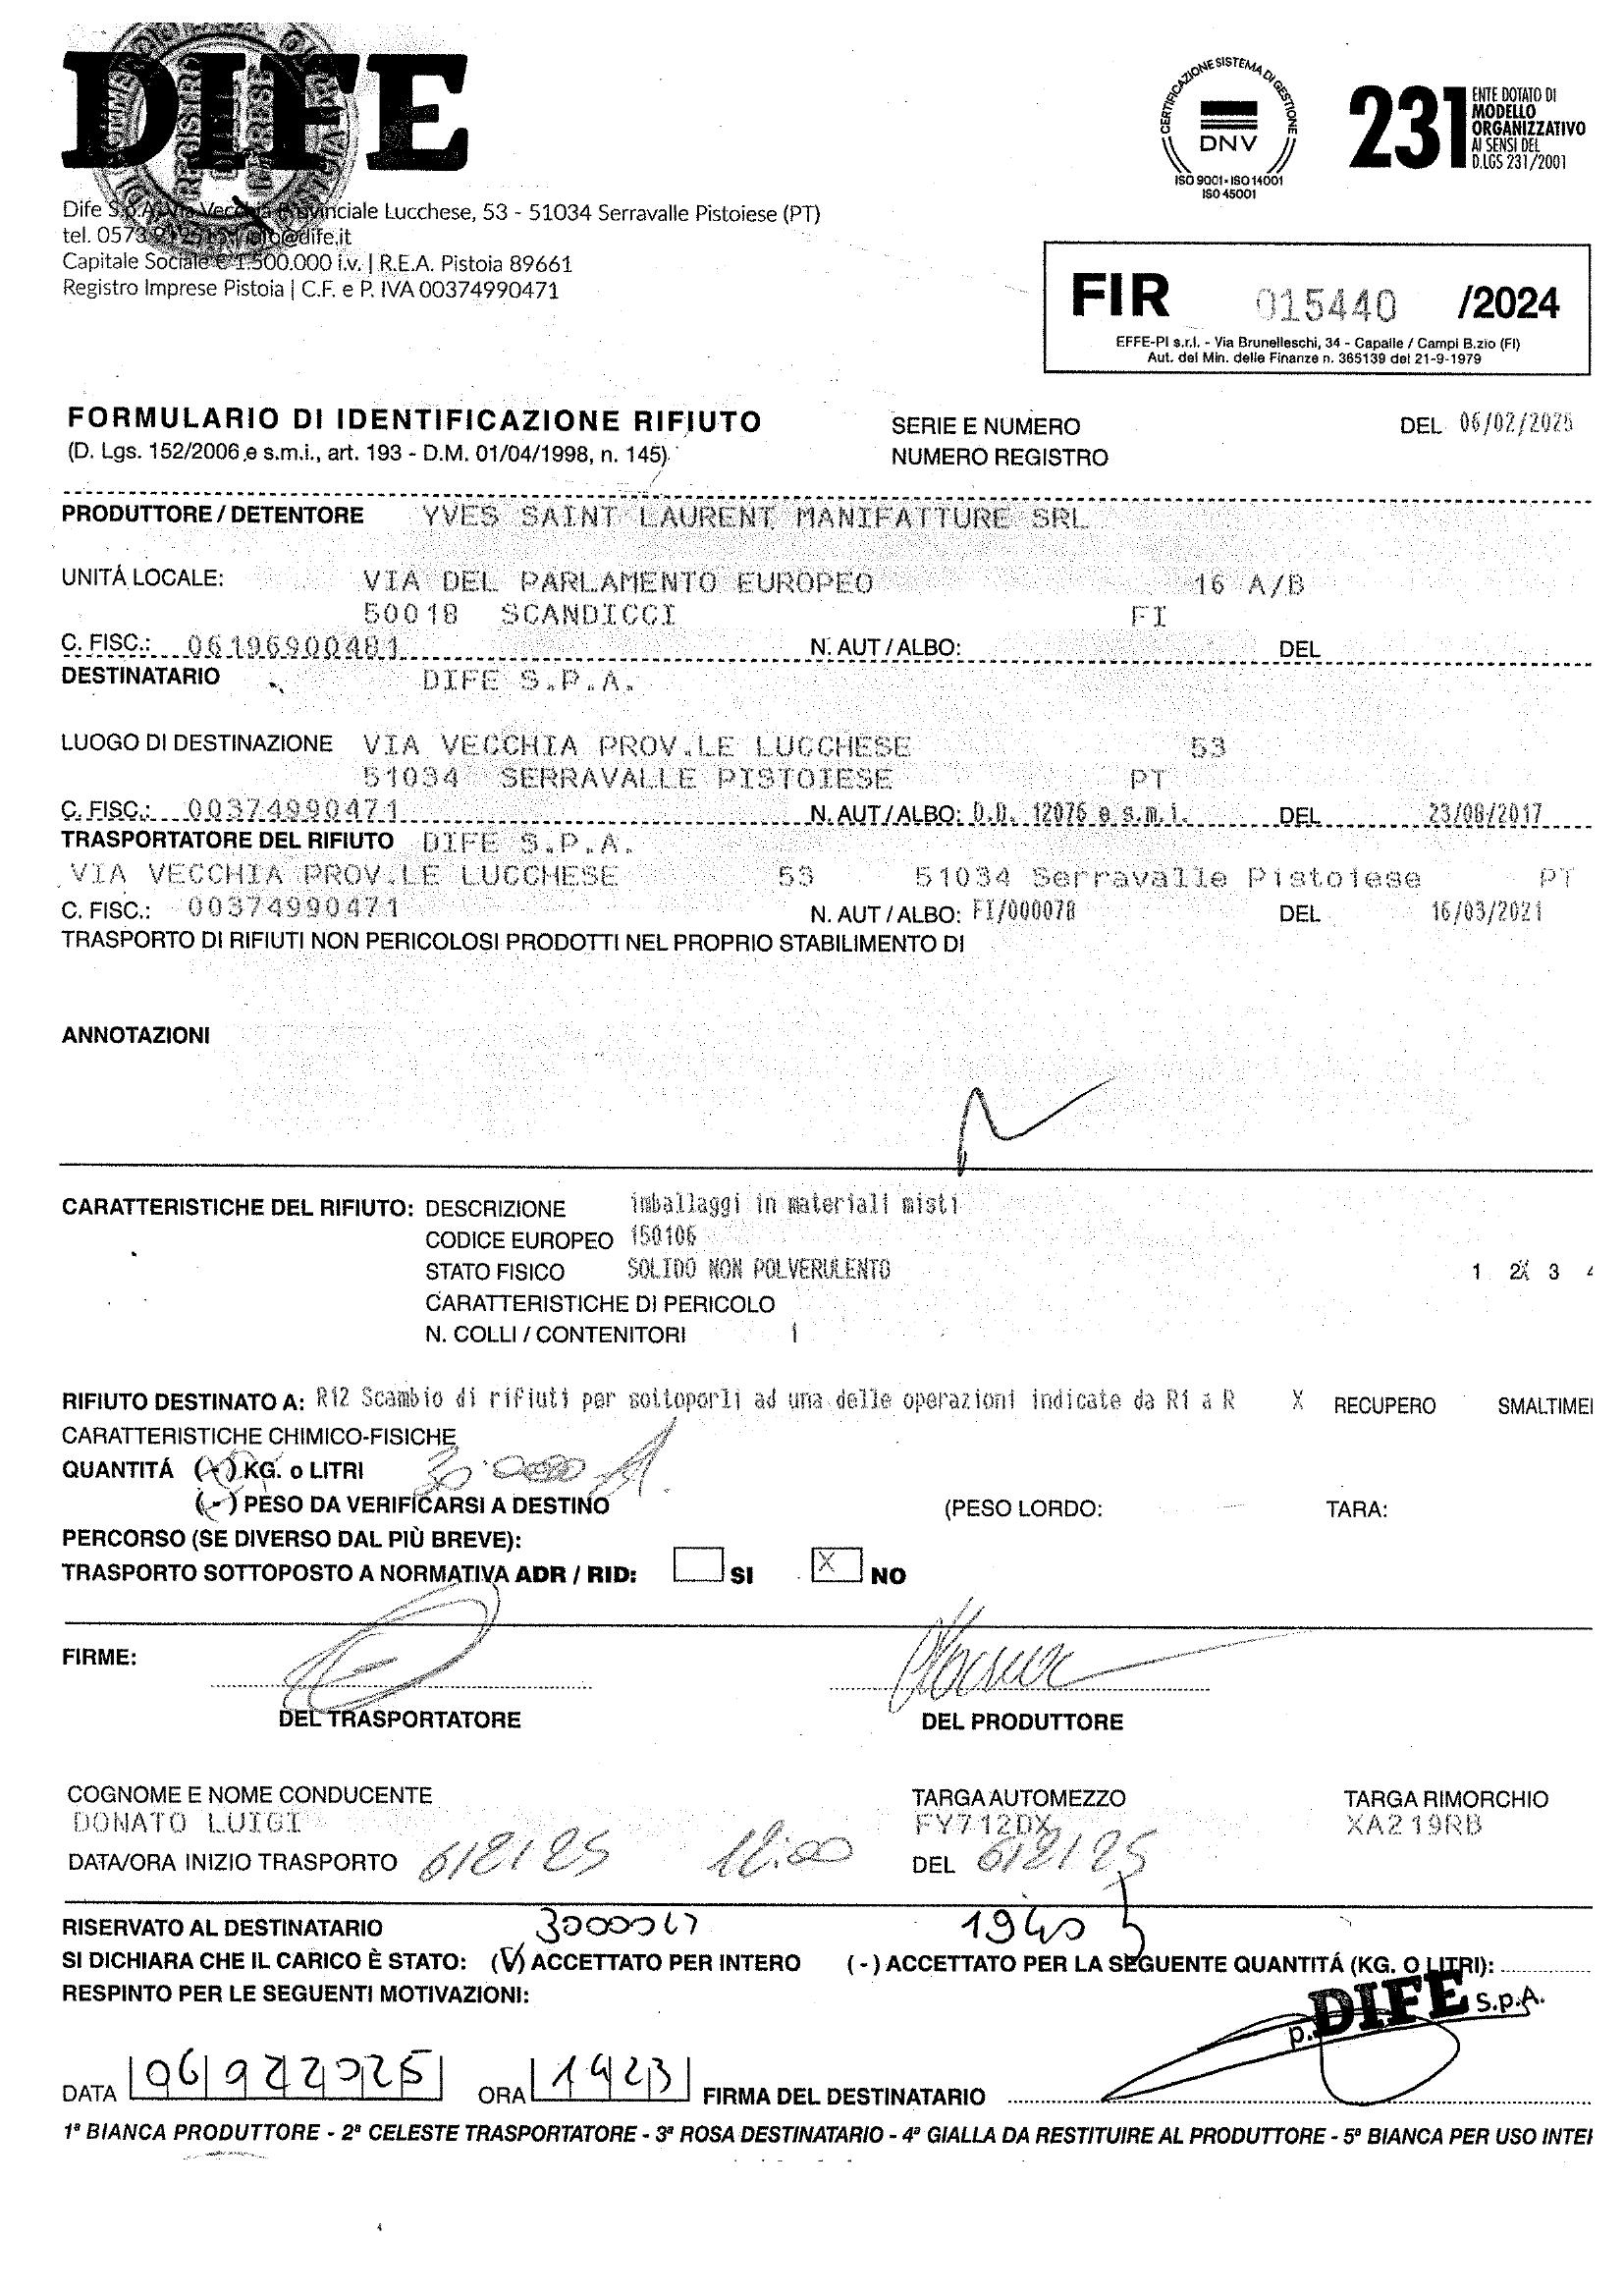 DIFE
Dife S.p.A. Via Vecchia Provinciale Lucchese, 53 - 51034 Serravalle Pistoiese (PT)
tel. 0573 dife@dife.it
Capitale Sociale € 1.500.000 i.v. | R.E.A. Pistoia 89661
Registro Imprese Pistoia | C.F. e P. IVA 00374990471
CERTIFICAZIONE SISTEMA DI GESTIONE
DNV
ISO 9001 - ISO 14001
ISO 45001
231
ENTE DOTATO DI
MODELLO
ORGANIZZATIVO
AI SENSI DEL
D.LGS 231/2001
FIR 015440 /2024
EFFE-PI s.r.l. - Via Brunelleschi, 34 - Capalle / Campi B.zio (FI)
Aut. del Min. delle Finanze n. 365139 del 21-9-1979
FORMULARIO DI IDENTIFICAZIONE RIFIUTO
(D. Lgs. 152/2006 e s.m.i., art. 193 - D.M. 01/04/1998, n. 145)
SERIE E NUMERO DEL 06/02/2025
NUMERO REGISTRO
PRODUTTORE / DETENTORE YVES SAINT LAURENT MANIFATTURE SRL
UNITÁ LOCALE: VIA DEL PARLAMENTO EUROPEO 16 A/B
50018 SCANDICCI FI
C. FISC.: 06196900481 N. AUT / ALBO: DEL
DESTINATARIO DIFE S.P.A.
LUOGO DI DESTINAZIONE VIA VECCHIA PROV.LE LUCCHESE 53
51034 SERRAVALLE PISTOIESE PT
C. FISC.: 00374990471 N. AUT / ALBO: D.D. 12076 e s.m.i. DEL 23/08/2017
TRASPORTATORE DEL RIFIUTO DIFE S.P.A.
VIA VECCHIA PROV.LE LUCCHESE 53 51034 Serravalle Pistoiese PT
C. FISC.: 00374990471 N. AUT / ALBO: FI/000078 DEL 16/03/2021
TRASPORTO DI RIFIUTI NON PERICOLOSI PRODOTTI NEL PROPRIO STABILIMENTO DI
ANNOTAZIONI
CARATTERISTICHE DEL RIFIUTO: DESCRIZIONE imballaggi in materiali misti
CODICE EUROPEO 150106
STATO FISICO SOLIDO NON POLVERULENTO 1 2X 3 4
CARATTERISTICHE DI PERICOLO
N. COLLI / CONTENITORI 1
RIFIUTO DESTINATO A: R12 Scambio di rifiuti per sottoporli ad una delle operazioni indicate da R1 a R X RECUPERO SMALTIME
CARATTERISTICHE CHIMICO-FISICHE
QUANTITÁ ( ) KG. o LITRI
(-) PESO DA VERIFICARSI A DESTINO (PESO LORDO: TARA:
PERCORSO (SE DIVERSO DAL PIÙ BREVE):
TRASPORTO SOTTOPOSTO A NORMATIVA ADR / RID: SI X NO
FIRME:
DEL TRASPORTATORE DEL PRODUTTORE
COGNOME E NOME CONDUCENTE TARGA AUTOMEZZO TARGA RIMORCHIO
DONATO LUIGI FY712DX XA219RB
DATA/ORA INIZIO TRASPORTO 6/2/25 12:00 DEL 6/2/25
RISERVATO AL DESTINATARIO 1940
SI DICHIARA CHE IL CARICO È STATO: (V) ACCETTATO PER INTERO (-) ACCETTATO PER LA SEGUENTE QUANTITÁ (KG. O LITRI):
RESPINTO PER LE SEGUENTI MOTIVAZIONI:
p. DIFE S.p.A.
DATA 06022025 ORA 1423 FIRMA DEL DESTINATARIO
1ª BIANCA PRODUTTORE - 2ª CELESTE TRASPORTATORE - 3ª ROSA DESTINATARIO - 4ª GIALLA DA RESTITUIRE AL PRODUTTORE - 5ª BIANCA PER USO INTE